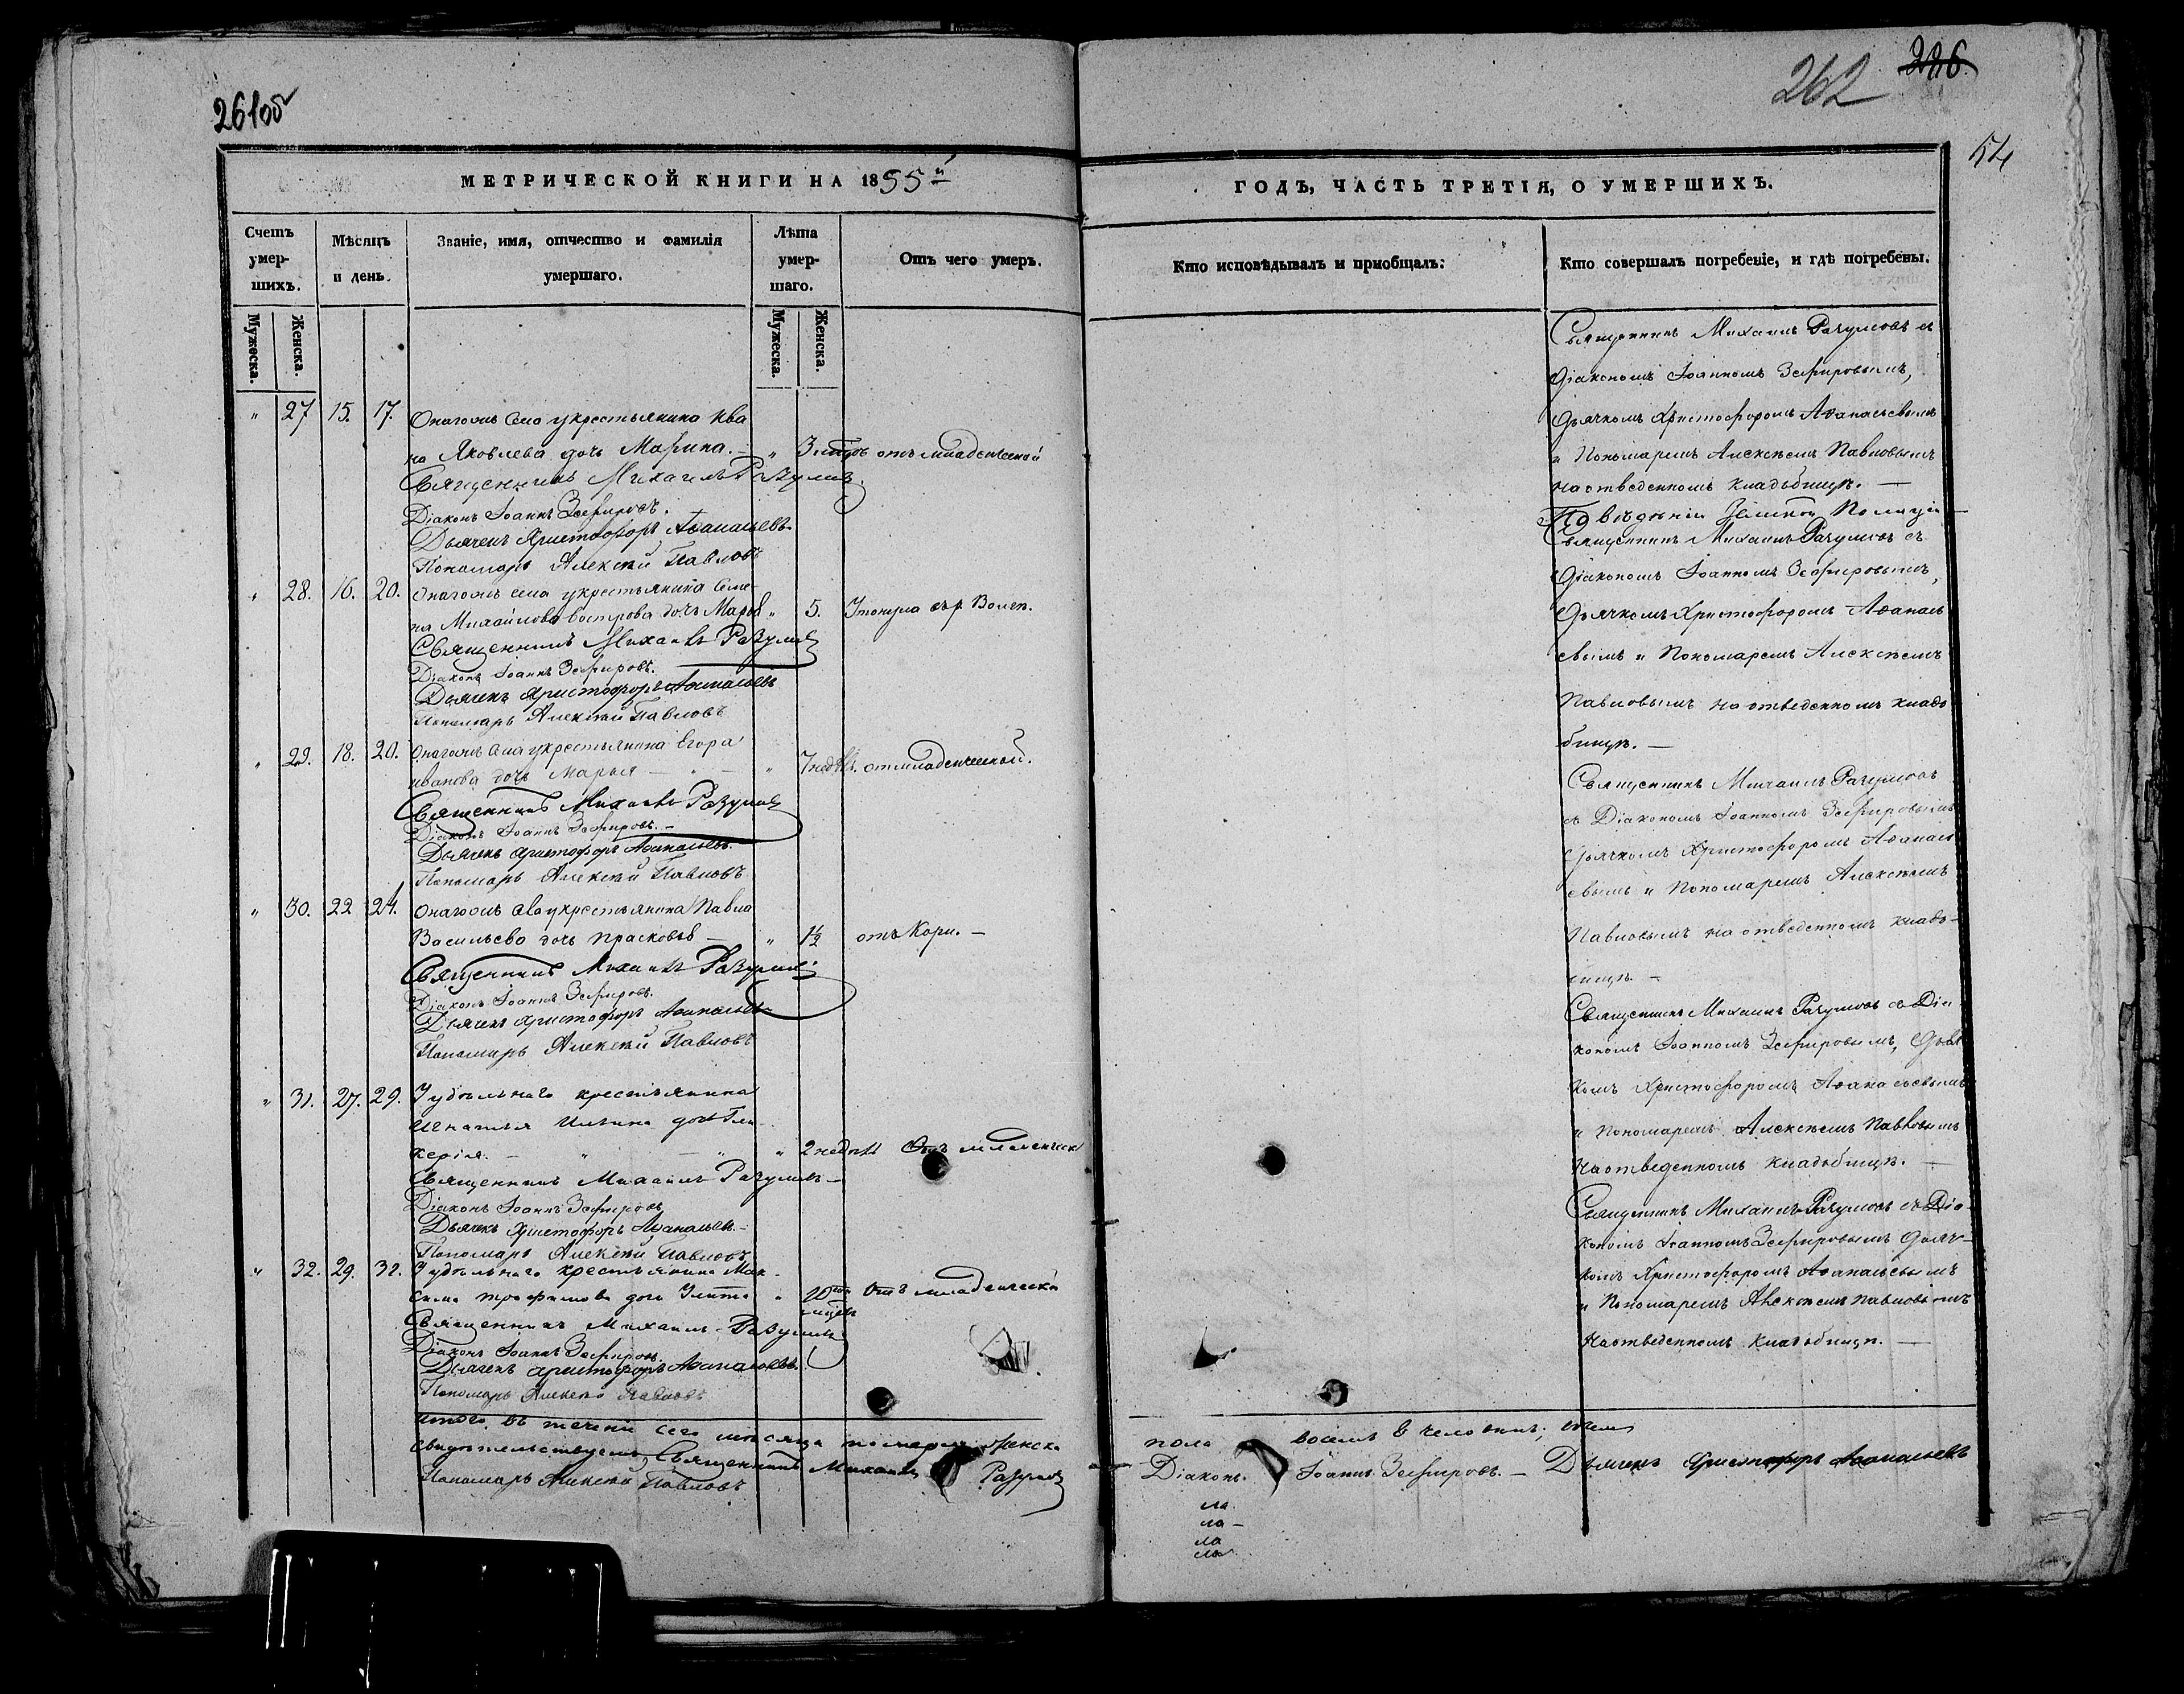 261об
262 226
54
МЕТРИЧЕСКОЙ КНИГИ НА 1855й
ГОДЪ, ЧАСТЬ ТРЕТІЯ, О УМЕРШИХЪ.
Счетъ умерших.
Мѣсяцъ и день.
Званіе, имя, отчество и фамилія умершаго.
Лѣта умершаго.
Отъ чего умеръ.
Кто исповѣдывалъ и пріобщалъ:
Кто совершалъ погребеніе, и гдѣ погребены.
Мужеска. Женска.
Мужеска. Женска.
" 27 15. 17. Онагожъ села у крестьянина Ива
на Яковлева дочь Марина. — " 3 отъ младенческой
Священникъ Михаилъ Разумовъ
Діаконъ Іоаннъ Зефировъ.
Дьячекъ Христофоръ Аѳанасьевъ
Пономарь Алексѣй Павловъ
" 28. 16. 20. Онагожъ села у крестьянина Семе-
на Михайлова Вострова дочь Марья " 5. Утонула въ р.
Священникъ Михаилъ Разумовъ
Діаконъ Іоаннъ Зефировъ.
Дьячекъ Христофоръ Аѳанасьевъ
Пономарь Алексѣй Павловъ
" 29. 18. 20. Онагожъ села у крестьянина Егора
Иванова дочь Марья — " — " 7 недѣль. отъ младенческой.
Священникъ Михаилъ Разумовъ
Діаконъ Іоаннъ Зефировъ. —
Дьячекъ Христофоръ Аѳанасьевъ.
Пономарь Алексѣй Павловъ
" 30. 22 24. Онагожъ села у крестьянина Павла
Васильева дочь Прасковья — " 1½ отъ Кори. —
Священникъ Михаилъ Разумовъ
Діаконъ Іоаннъ Зефировъ.
Дьячекъ Христофоръ Аѳанасьевъ
Пономарь Алексѣй Павловъ
" 31. 27. 29. Удѣльнаго крестьянина
Игнатья Ильина дочь Гли-
керія. — " — " " 2 недѣли Отъ младенческ
Священникъ Михаилъ Разумовъ —
Діаконъ Іоаннъ Зефировъ
Дьячекъ Христофоръ Аѳанасьевъ. —
Пономарь Алексѣй Павловъ
" 32. 29. 31. Удѣльнаго крестьянина Мак-
сима Трофимова дочь " Отъ младенческа
Священникъ Михаилъ Разумовъ
Діаконъ Іоаннъ Зефировъ.
Дьячекъ Христофоръ Аѳанасьевъ.
Пономарь Алексѣй Павловъ
Священникъ Михаилъ Разумовъ съ
Діакономъ Іоанномъ Зефировымъ,
Дьячкомъ Христофоромъ Аѳанасьевымъ
и Пономаремъ Алексѣемъ Павловымъ
на отведенномъ кладбищѣ. —
По вѣденію Земской Полиціи —
Священникъ Михаилъ Разумовъ съ
Діакономъ Іоанномъ Зефировымъ,
Дьячкомъ Христофоромъ Аѳанась
евымъ и Пономаремъ Алексѣемъ
Павловымъ на отведенномъ кладъ
бищѣ. —
Священникъ Михаилъ Разумовъ
съ Діакономъ Іоанномъ Зефировымъ
Дьячкомъ Христофоромъ Аѳанась
евымъ и Пономаремъ Алексѣемъ
Павловымъ на отведенномъ кладъ-
бищѣ. —
Священникъ Михаилъ Разумовъ съ Діа
кономъ Іоанномъ Зефировымъ, Дьяч
комъ Христофоромъ Аѳанасьевымъ
и Пономаремъ Алексѣемъ Павловымъ
на отведенномъ кладъбищѣ. —
Священникъ Михаилъ Разумовъ съ Діа-
кономъ Іоанномъ Зефировымъ Дьяч-
комъ Христофоромъ Аѳанасьевымъ
и Пономаремъ Алексѣемъ Павловымъ
на отведенномъ кладъбищѣ. —
Итого въ теченіи сего мѣсяца померло женска
пола восемь 8 человѣкъ;
свидѣтельствуемъ, Священникъ Михаилъ Разумовъ
Діаконъ. Іоаннъ Зефировъ. — Дьячекъ Христофоръ Аѳанасьевъ
Пономарь Алексѣй Павловъ
ла.
ла —
ла
ла